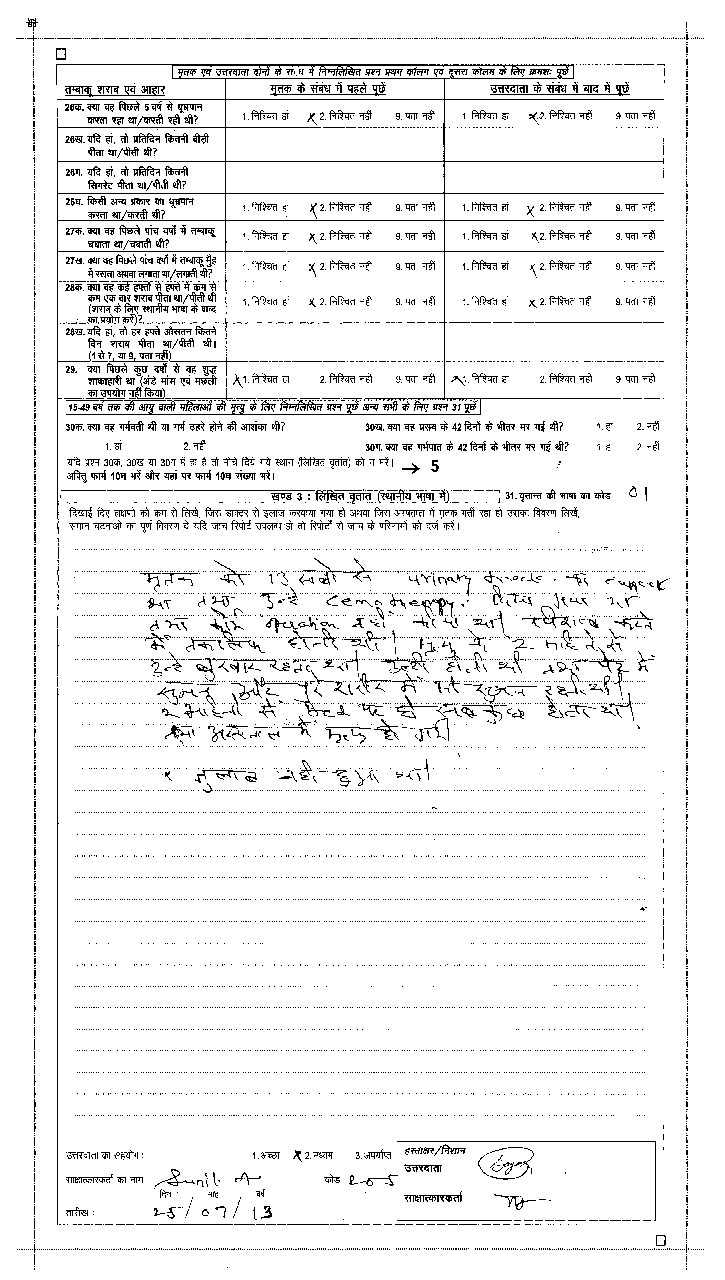 मृतक एवं उत्तरदाता दोनों के संबंध में निम्नलिखित प्रश्न प्रथम कॉलम एवं दूसरा कॉलम के लिए क्रमशः पूछें
तम्बाकू शराब एवं आहार मृतक के संबंध में पहले पूछें उत्तरदाता के संबंध में बाद में पूछें
26क. क्या वह पिछले 5 वर्ष से धूम्रपान
करता रहा था/करती रही थी? 1. निश्चित हां X 2. निश्चित नहीं 9. पता नहीं 1. निश्चित हां X 2. निश्चित नहीं 9. पता नहीं
26ख. यदि हां, तो प्रतिदिन कितनी बीड़ी
पीता था/पीती थी?
26ग. यदि हां, तो प्रतिदिन कितनी
सिगरेट पीता था/पीती थी?
26घ. किसी अन्य प्रकार का धूम्रपान
करता था/करती थी? 1. निश्चित हां X 2. निश्चित नहीं 9. पता नहीं 1. निश्चित हां X 2. निश्चित नहीं 9. पता नहीं
27क. क्या वह पिछले पांच वर्षों में तम्बाकू
चबाता था/चबाती थी? 1. निश्चित हां X 2. निश्चित नहीं 9. पता नहीं 1. निश्चित हां X 2. निश्चित नहीं 9. पता नहीं
27ख. क्या वह पिछले पांच वर्षों में तम्बाकू मुँह
में रखता अथवा लगाता था/लगाती थी? 1. निश्चित हां X 2. निश्चित नहीं 9. पता नहीं 1. निश्चित हां X 2. निश्चित नहीं 9. पता नहीं
28क. क्या वह कई हफ्तों से हफ्ते में कम से
कम एक बार शराब पीता था/पीती थी
(शराब के लिए स्थानीय भाषा के शब्द
का प्रयोग करें)? 1. निश्चित हां X 2. निश्चित नहीं 9. पता नहीं 1. निश्चित हां X 2. निश्चित नहीं 9. पता नहीं
28ख. यदि हां, तो हर हफ्ते औसतन कितने
दिन शराब पीता था/पीती थी।
(1 से 7, या 9, पता नहीं)
29. क्या पिछले कुछ वर्षों से वह शुद्ध
शाकाहारी था (अंडे मांस एवं मछली
का उपयोग नहीं किया) X 1. निश्चित हां 2. निश्चित नहीं 9. पता नहीं X 1. निश्चित हां 2. निश्चित नहीं 9. पता नहीं
15-49 वर्ष तक की आयु वाली महिलाओं की मृत्यु के लिए निम्नलिखित प्रश्न पूछें अन्य सभी के लिए प्रश्न 31 पूछें
30क. क्या वह गर्भवती थी या गर्भ ठहरे होने की आशंका थी? 30ख. क्या वह प्रसव के 42 दिनों के भीतर मर गई थी? 1. हां 2. नहीं
1. हां 2. नहीं 30ग. क्या वह गर्भपात के 42 दिनों के भीतर मर गई थी? 1. हां 2. नहीं
यदि प्रश्न 30क, 30ख या 30ग में हां है तो नीचे दिये गये स्थान (लिखित वृतांत) को न भरें। → 5
अपितु फार्म 10म भरें और यहां पर फार्म 10म संख्या भरें।
खण्ड 3 : लिखित वृतांत (स्थानीय भाषा में) 31. वृतान्त की भाषा का कोड 01
दिखाई दिए लक्षणों को क्रम से लिखें, जिस डाक्टर से इलाज करवाया गया हो अथवा जिस अस्पताल में मृतक भर्ती रहा हो उसका विवरण लिखें,
समान घटनाओं का पूर्ण विवरण दें यदि जांच रिपोर्ट उपलब्ध हो तो रिपोर्टों से जांच के परिणामों को दर्ज करें।
मृतक को 13 सालो से urinary का
था तथा उन्हे दिया गया था
तथा कोई नही किया था। पेशाब करने
में तकलिफ होती थी। मृत्यु के 2 महिने से
उन्हे बुखार रहता था। उल्टी होती थी तथा पेट में
सूजन और पूरे शरीर में भी सूजन रहती थी।
2 महिनो से बिस्तर पर ही सब कुछ होता था।
तथा अस्पताल में मृत्यु हो गई।
* जुलाब नही हुआ था।
उत्तरदाता का सहयोग : 1. अच्छा X 2. मध्यम 3. अपर्याप्त हस्ताक्षर/निशान
उत्तरदाता
साक्षात्कारकर्ता का नाम Sunil कोड 205
साक्षात्कारकर्ता
दिन माह वर्ष
तारीख : 25/07/13